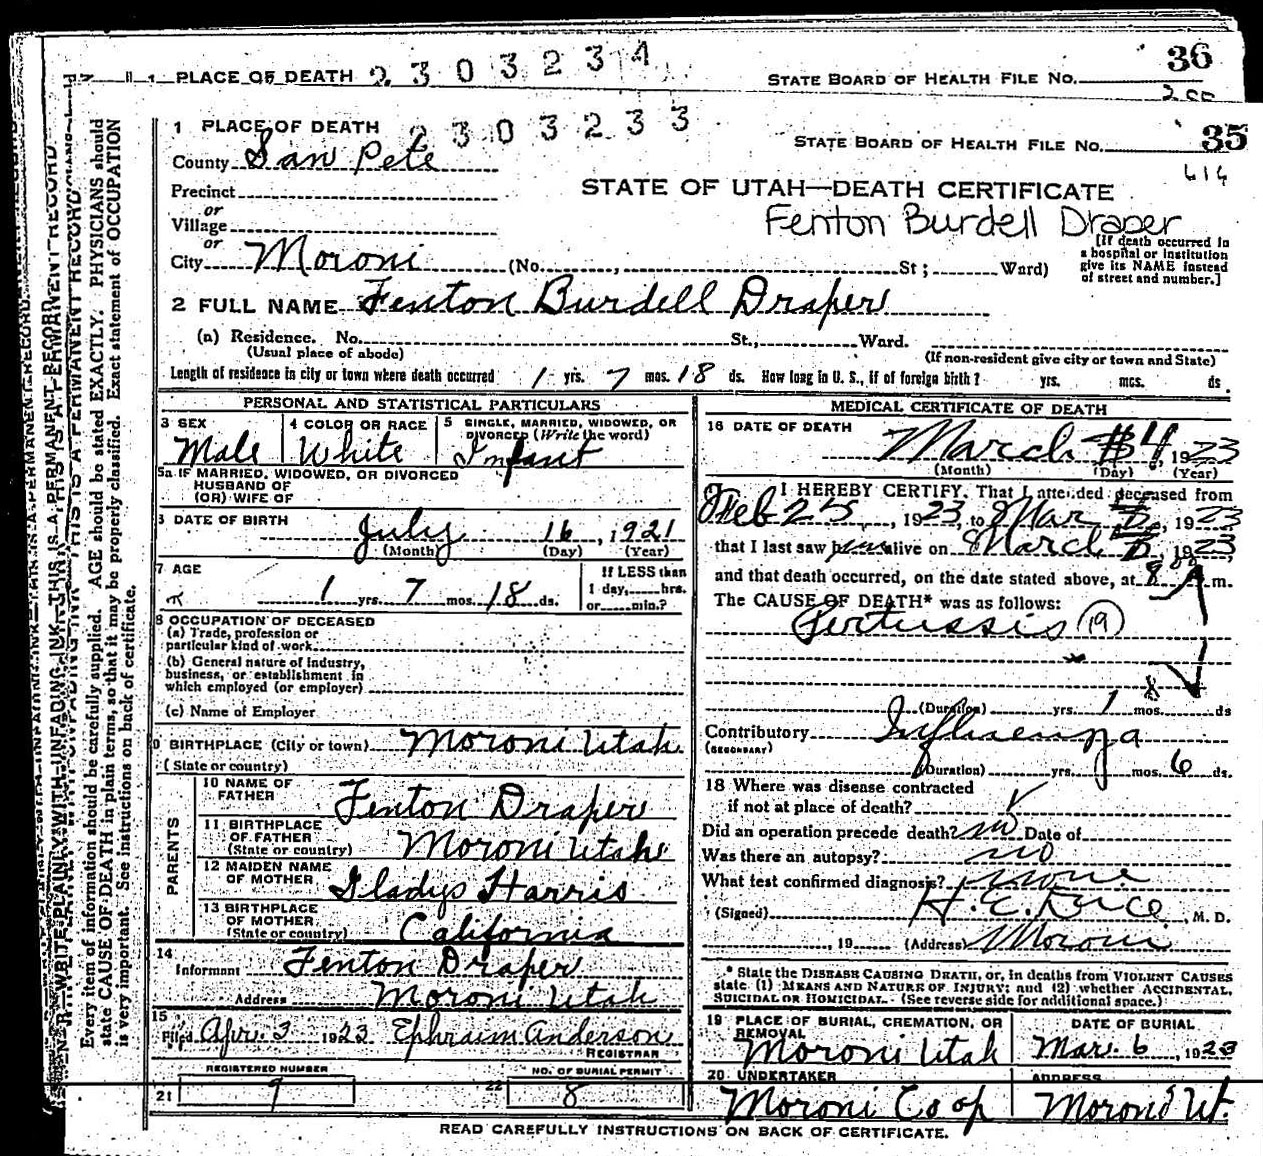 36
1 PLACE OF DEATH 2303234 STATE BOARD OF HEALTH FILE NO.
35
1 PLACE OF DEATH 2303233 STATE BOARD OF HEALTH FILE NO.
616
County San Pete
STATE OF UTAH—DEATH CERTIFICATE
Precinct
or
Fenton Burdell Draper
Village
or
[If death occurred in a hospital or institution give its NAME instead of street and number.]
City Moroni (No. , St; Ward)
2 FULL NAME Fenton Burdell Draper
(a) Residence. No. St., Ward.
(Usual place of abode) (If non-resident give city or town and State)
Length of residence in city or town where death occurred 1 yrs. 7 mos. 18 ds. How long in U. S., if of foreign birth? yrs. mos. ds.
PERSONAL AND STATISTICAL PARTICULARS
3 SEX
Male
4 COLOR OR RACE
White
5 SINGLE, MARRIED, WIDOWED, OR DIVORCED (Write the word)
Infant
5a IF MARRIED, WIDOWED, OR DIVORCED
HUSBAND OF
(OR) WIFE OF
6 DATE OF BIRTH
July 16, 1921
(Month) (Day) (Year)
7 AGE
1 yrs. 7 mos. 18 ds.
If LESS than
1 day, hrs.
or min.?
8 OCCUPATION OF DECEASED
(a) Trade, profession or
particular kind of work
(b) General nature of industry,
business, or establishment in
which employed (or employer)
(c) Name of Employer
9 BIRTHPLACE (City or town) Moroni Utah
(State or country)
PARENTS
10 NAME OF FATHER Fenton Draper
11 BIRTHPLACE OF FATHER (State or country) Moroni Utah
12 MAIDEN NAME OF MOTHER Gladys Harris
13 BIRTHPLACE OF MOTHER (State or country) California
14
Informant Fenton Draper
Address Moroni Utah
15
Filed Apr. 3 1923 Ephraim Anderson
REGISTRAR
REGISTERED NUMBER
21 9
NO. OF BURIAL PERMIT
22 8
MEDICAL CERTIFICATE OF DEATH
16 DATE OF DEATH
March 4 1923
(Month) (Day) (Year)
I HEREBY CERTIFY, That I attended deceased from
Feb 25, 1923, to Mar , 1923
that I last saw him alive on March , 1923,
and that death occurred, on the date stated above, at 8 A m.
The CAUSE OF DEATH* was as follows:
Pertussis (19)
(Duration) yrs. 1 mos. ds
Contributory Influenza
(SECONDARY)
(Duration) yrs. mos. 6 ds.
18 Where was disease contracted
if not at place of death?
Did an operation precede death? no Date of
Was there an autopsy? no
What test confirmed diagnosis? none
(Signed) M. D.
, 19 (Address) Moroni
* State the DISEASE CAUSING DEATH, or, in deaths from VIOLENT CAUSES
state (1) MEANS AND NATURE OF INJURY; and (2) whether ACCIDENTAL,
SUICIDAL OR HOMICIDAL. (See reverse side for additional space.)
19 PLACE OF BURIAL, CREMATION, OR REMOVAL
Moroni Utah
DATE OF BURIAL
Mar. 6, 1923
20 UNDERTAKER
Moroni Co op
ADDRESS
Moroni Ut.
READ CAREFULLY INSTRUCTIONS ON BACK OF CERTIFICATE.
Every item of information should be carefully supplied. AGE should be stated EXACTLY. PHYSICIANS should
state CAUSE OF DEATH in plain terms, so that it may be properly classified. Exact statement of OCCUPATION
is very important. See instructions on back of certificate.